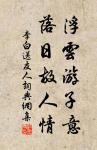 浮雲游子意
落日故人情
李白送友人詞典網集